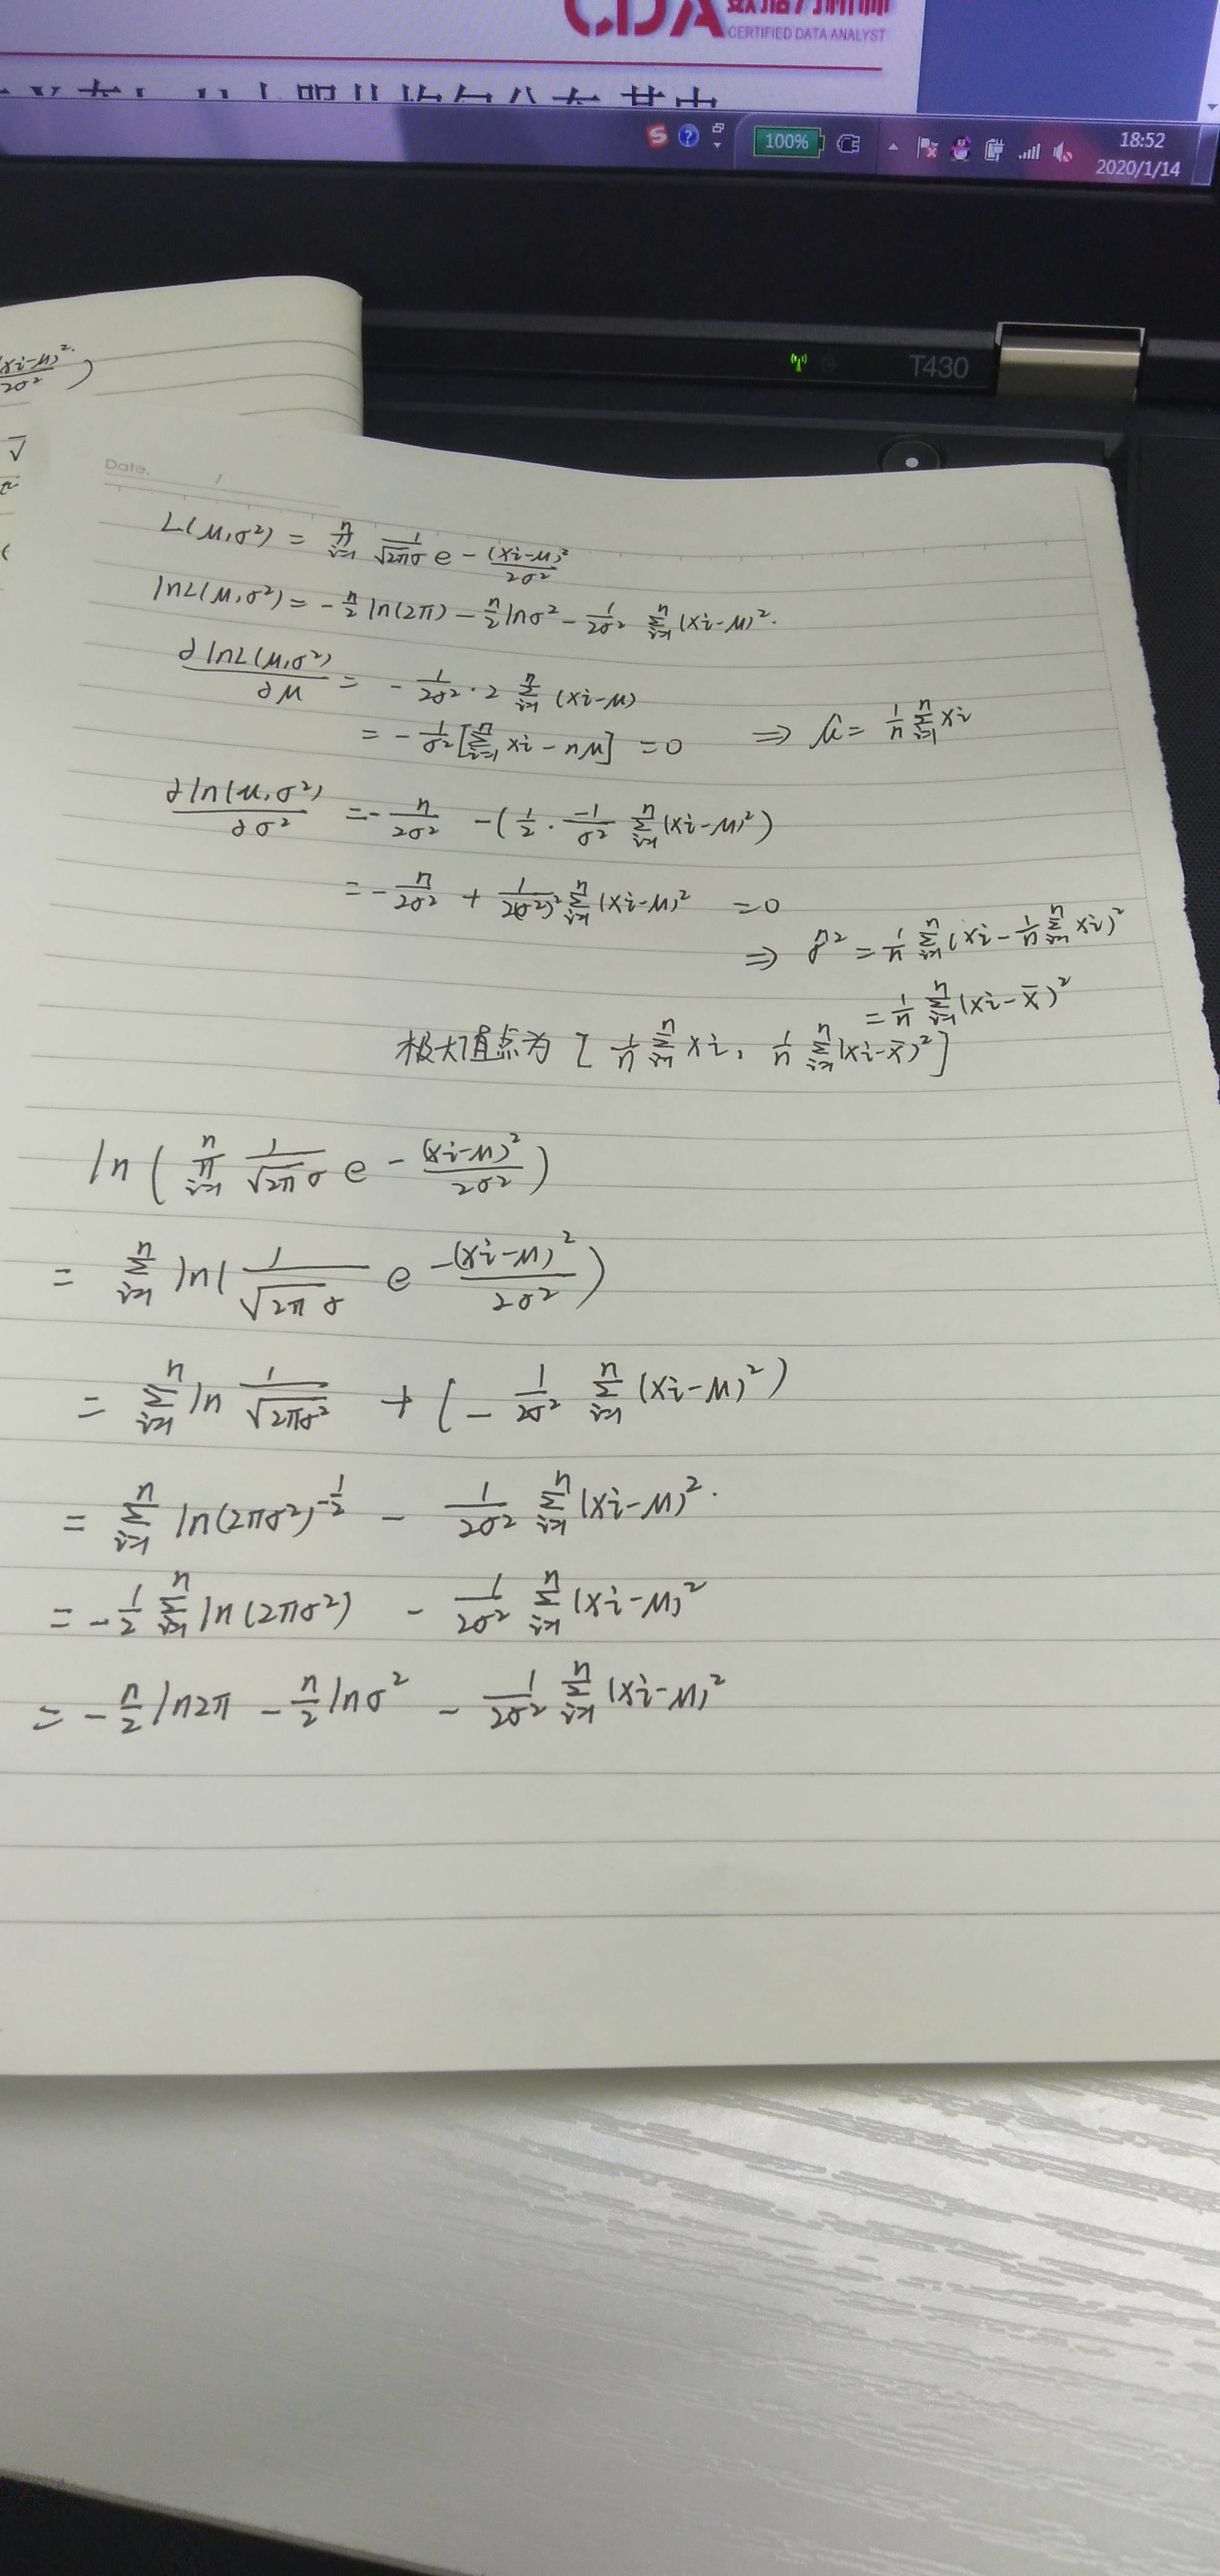 CDA
CERTIFIED DATA ANALYST
100%
18:52
2020/1/14
T430
(xi-μ)²
2σ² )
Date.
L(μ,σ²) = ∏ⁿᵢ₌₁ 1/(√2π σ) e - (xi-μ)²/2σ²
lnL(μ,σ²) = - n/2 ln(2π) - n/2 lnσ² - 1/2σ² ∑ⁿᵢ₌₁ (xi-μ)².
∂lnL(μ,σ²)/∂μ = - 1/2σ² · 2 ∑ⁿᵢ₌₁ (xi-μ)
= - 1/σ² [∑ⁿᵢ₌₁ xi - nμ] = 0 ⇒ μ̂ = 1/n ∑ⁿᵢ₌₁ xi
∂ln(μ,σ²)/∂σ² = - n/2σ² - ( 1/2 · -1/σ² ∑ⁿᵢ₌₁ (xi-μ)² )
= - n/2σ² + 1/2(σ²)² ∑ⁿᵢ₌₁ (xi-μ)² = 0
⇒ σ̂² = 1/n ∑ⁿᵢ₌₁ (xi - 1/n ∑ⁿᵢ₌₁ xi)²
= 1/n ∑ⁿᵢ₌₁ (xi-x̄)²
极大值点为 [ 1/n ∑ⁿᵢ₌₁ xi, 1/n ∑ⁿᵢ₌₁ (xi-x̄)² ]
ln ( ∏ⁿᵢ₌₁ 1/(√2π σ) e - (xi-μ)²/2σ² )
= ∑ⁿᵢ₌₁ ln( 1/(√2π σ) e -(xi-μ)²/2σ² )
= ∑ⁿᵢ₌₁ ln 1/√2πσ² + ( - 1/2σ² ∑ⁿᵢ₌₁ (xi-μ)² )
= ∑ⁿᵢ₌₁ ln(2πσ²)^-1/2 - 1/2σ² ∑ⁿᵢ₌₁ (xi-μ)².
= - 1/2 ∑ⁿᵢ₌₁ ln(2πσ²) - 1/2σ² ∑ⁿᵢ₌₁ (xi-μ)²
= - n/2 ln2π - n/2 lnσ² - 1/2σ² ∑ⁿᵢ₌₁ (xi-μ)²